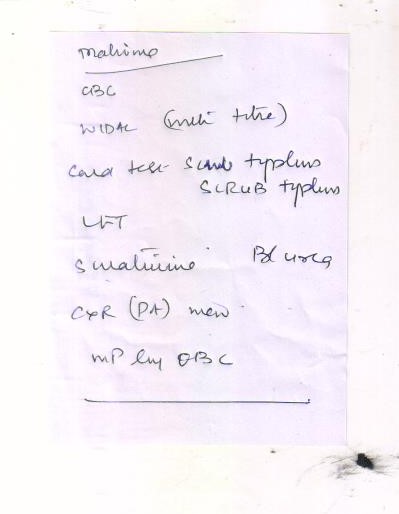 Mahima
CBC
WIDAL (with titre)
Card test Scrub typhus
SCRUB typhus
LFT
S creatinine Bl urea
CXR (PA) view
MP by QBC